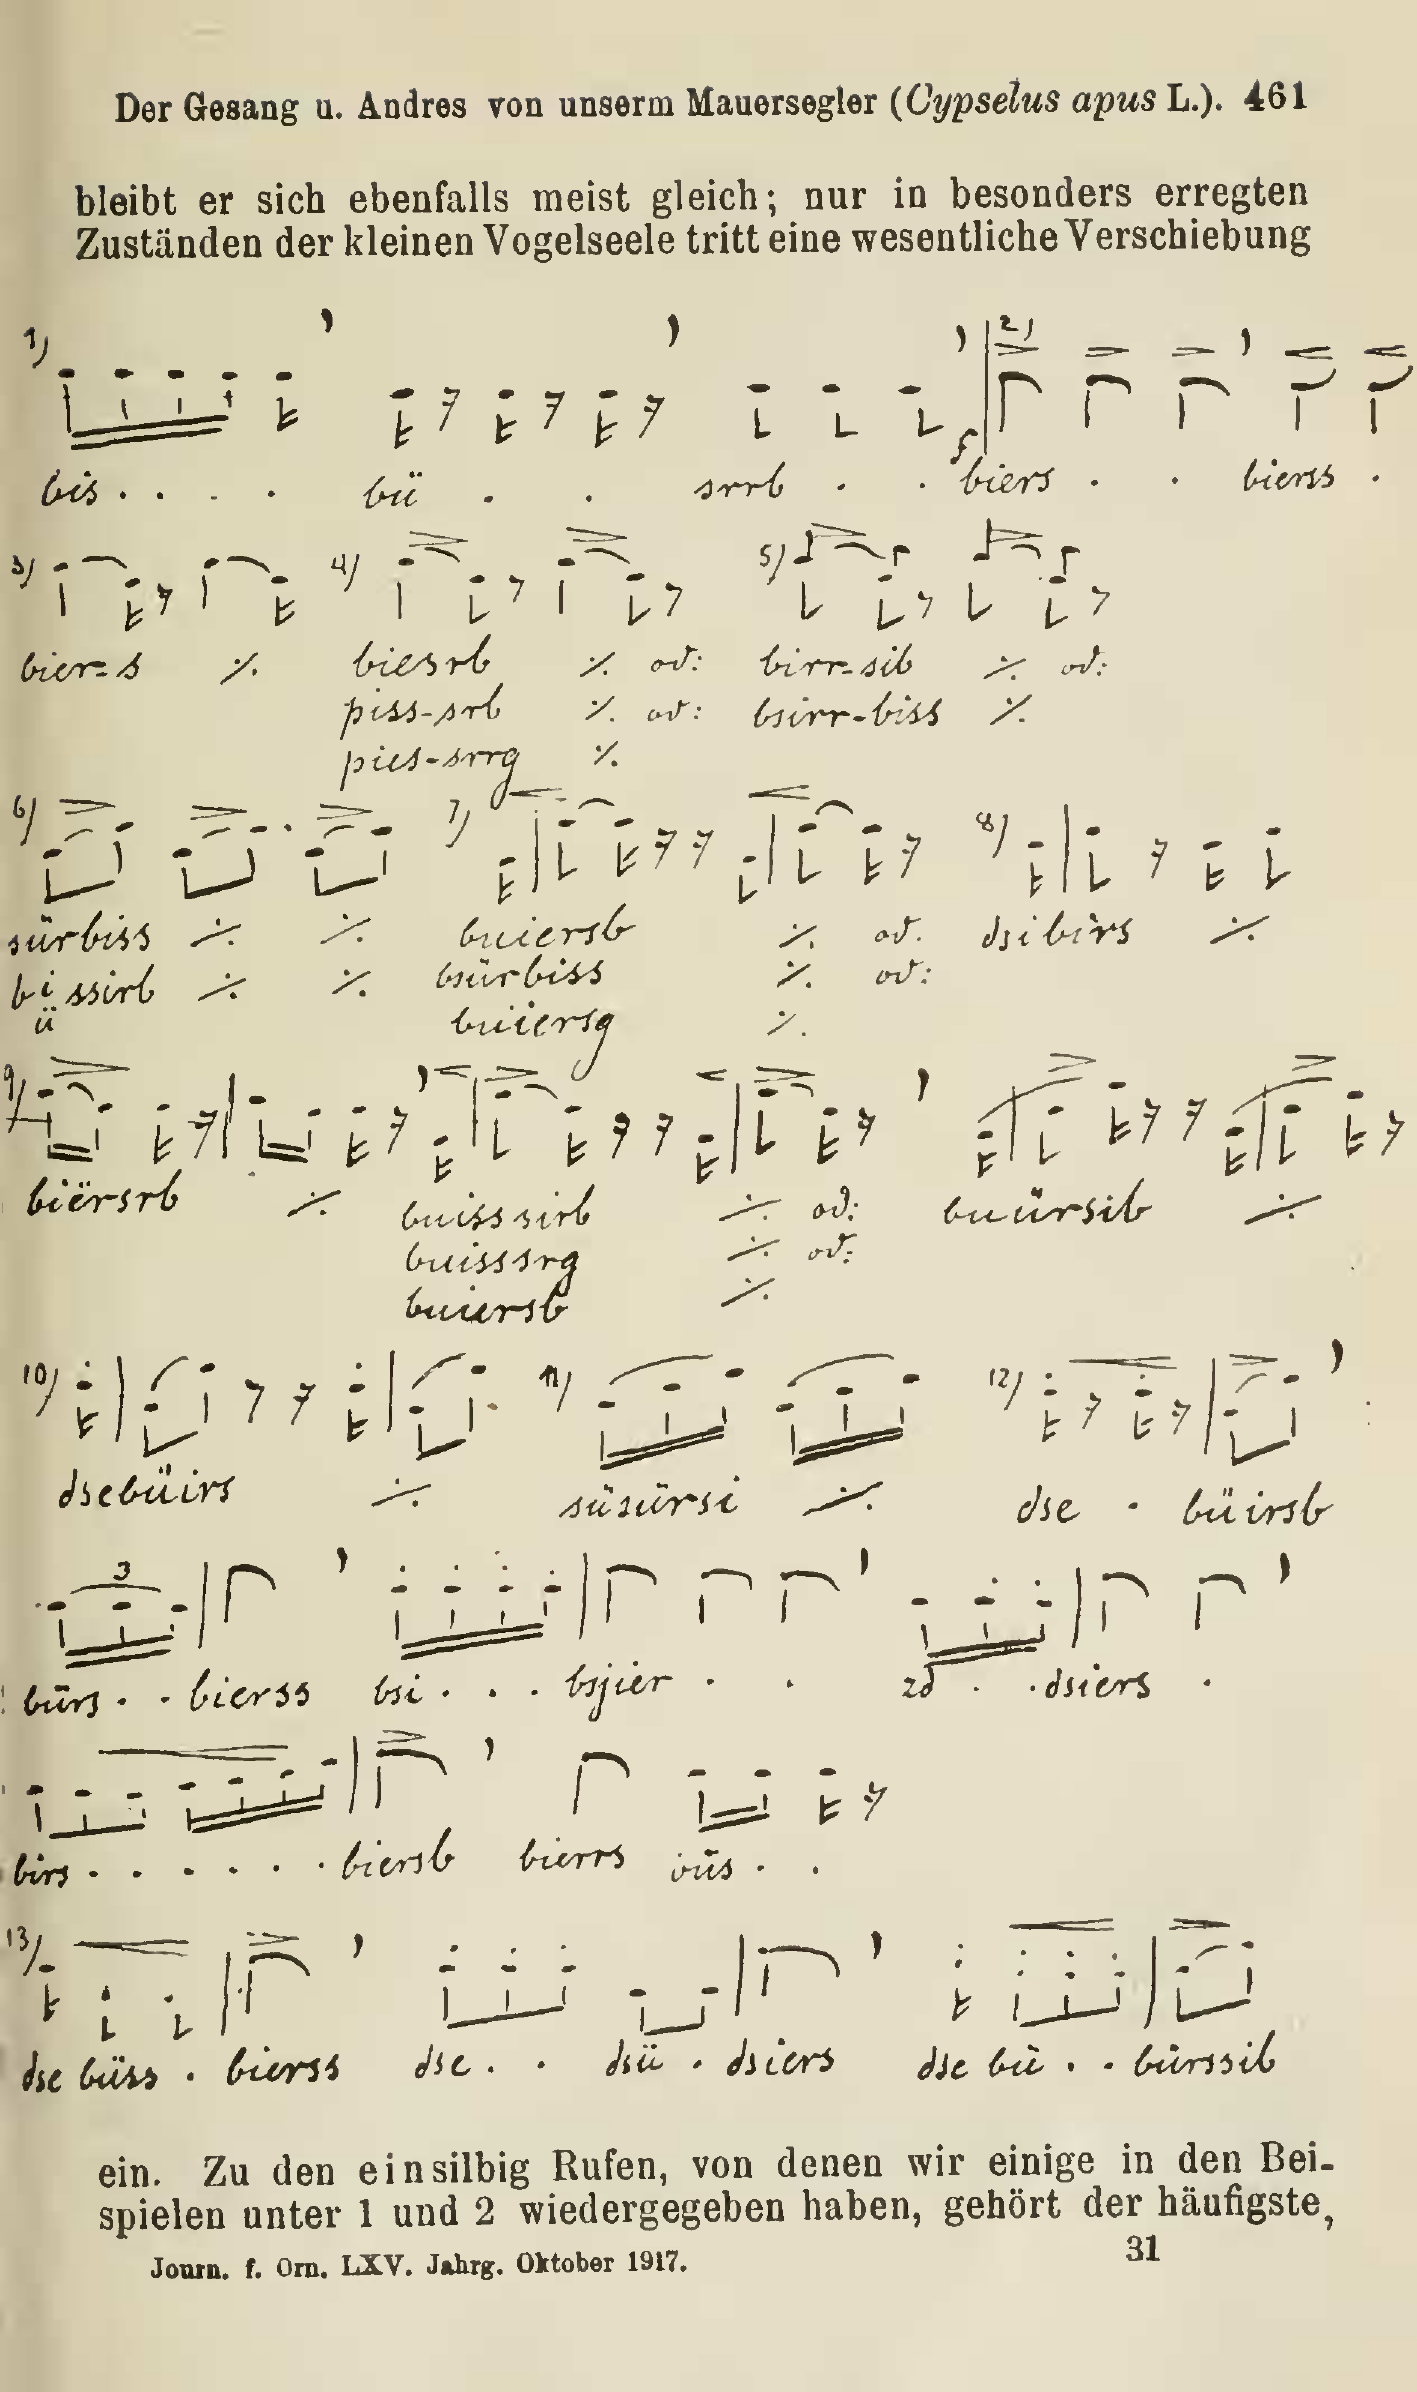 Der Gesang u. Andres von unserm Mauersegler (Cypselus apus L.). 461
bleibt er sich ebenfalls meist gleich; nur in besonders erregten
Zuständen der kleinen Vogelseele tritt eine wesentliche Verschiebung
1) 2)
bis . . . . bü . . srrb . . biers . . bierss .
3) 4) 5)
bier=s ٪ biesrb ٪ od: birr=sib ٪ od:
piss-srb ٪ od: bsirr-biss ٪
pies-srrg ٪
6) 7) 8)
sürbiss ٪ ٪ buiersb ٪ od. dsibirs ٪
bissirb ٪ ٪ bsürbiss ٪ od:
ü buiersg ٪
9)
biërsrb ٪ buisssirb ٪ od: buürsib ٪
buisssrg ٪ od:
buiersb ٪
10) 11) 12)
dsebüirs ٪ süsürsi ٪ dse . büirsb
3
bürs . . bierss bsi . . . bsjier . . zd . . dsiers .
birs . . . . . . biersb bierrs üs . .
13)
dse büss . bierss dse . . dsü . dsiers dse bü . . bürssib
ein. Zu den einsilbig Rufen, von denen wir einige in den Bei-
spielen unter 1 und 2 wiedergegeben haben, gehört der häufigste,
Journ. f. Orn. LXV. Jahrg. Oktober 1917. 31